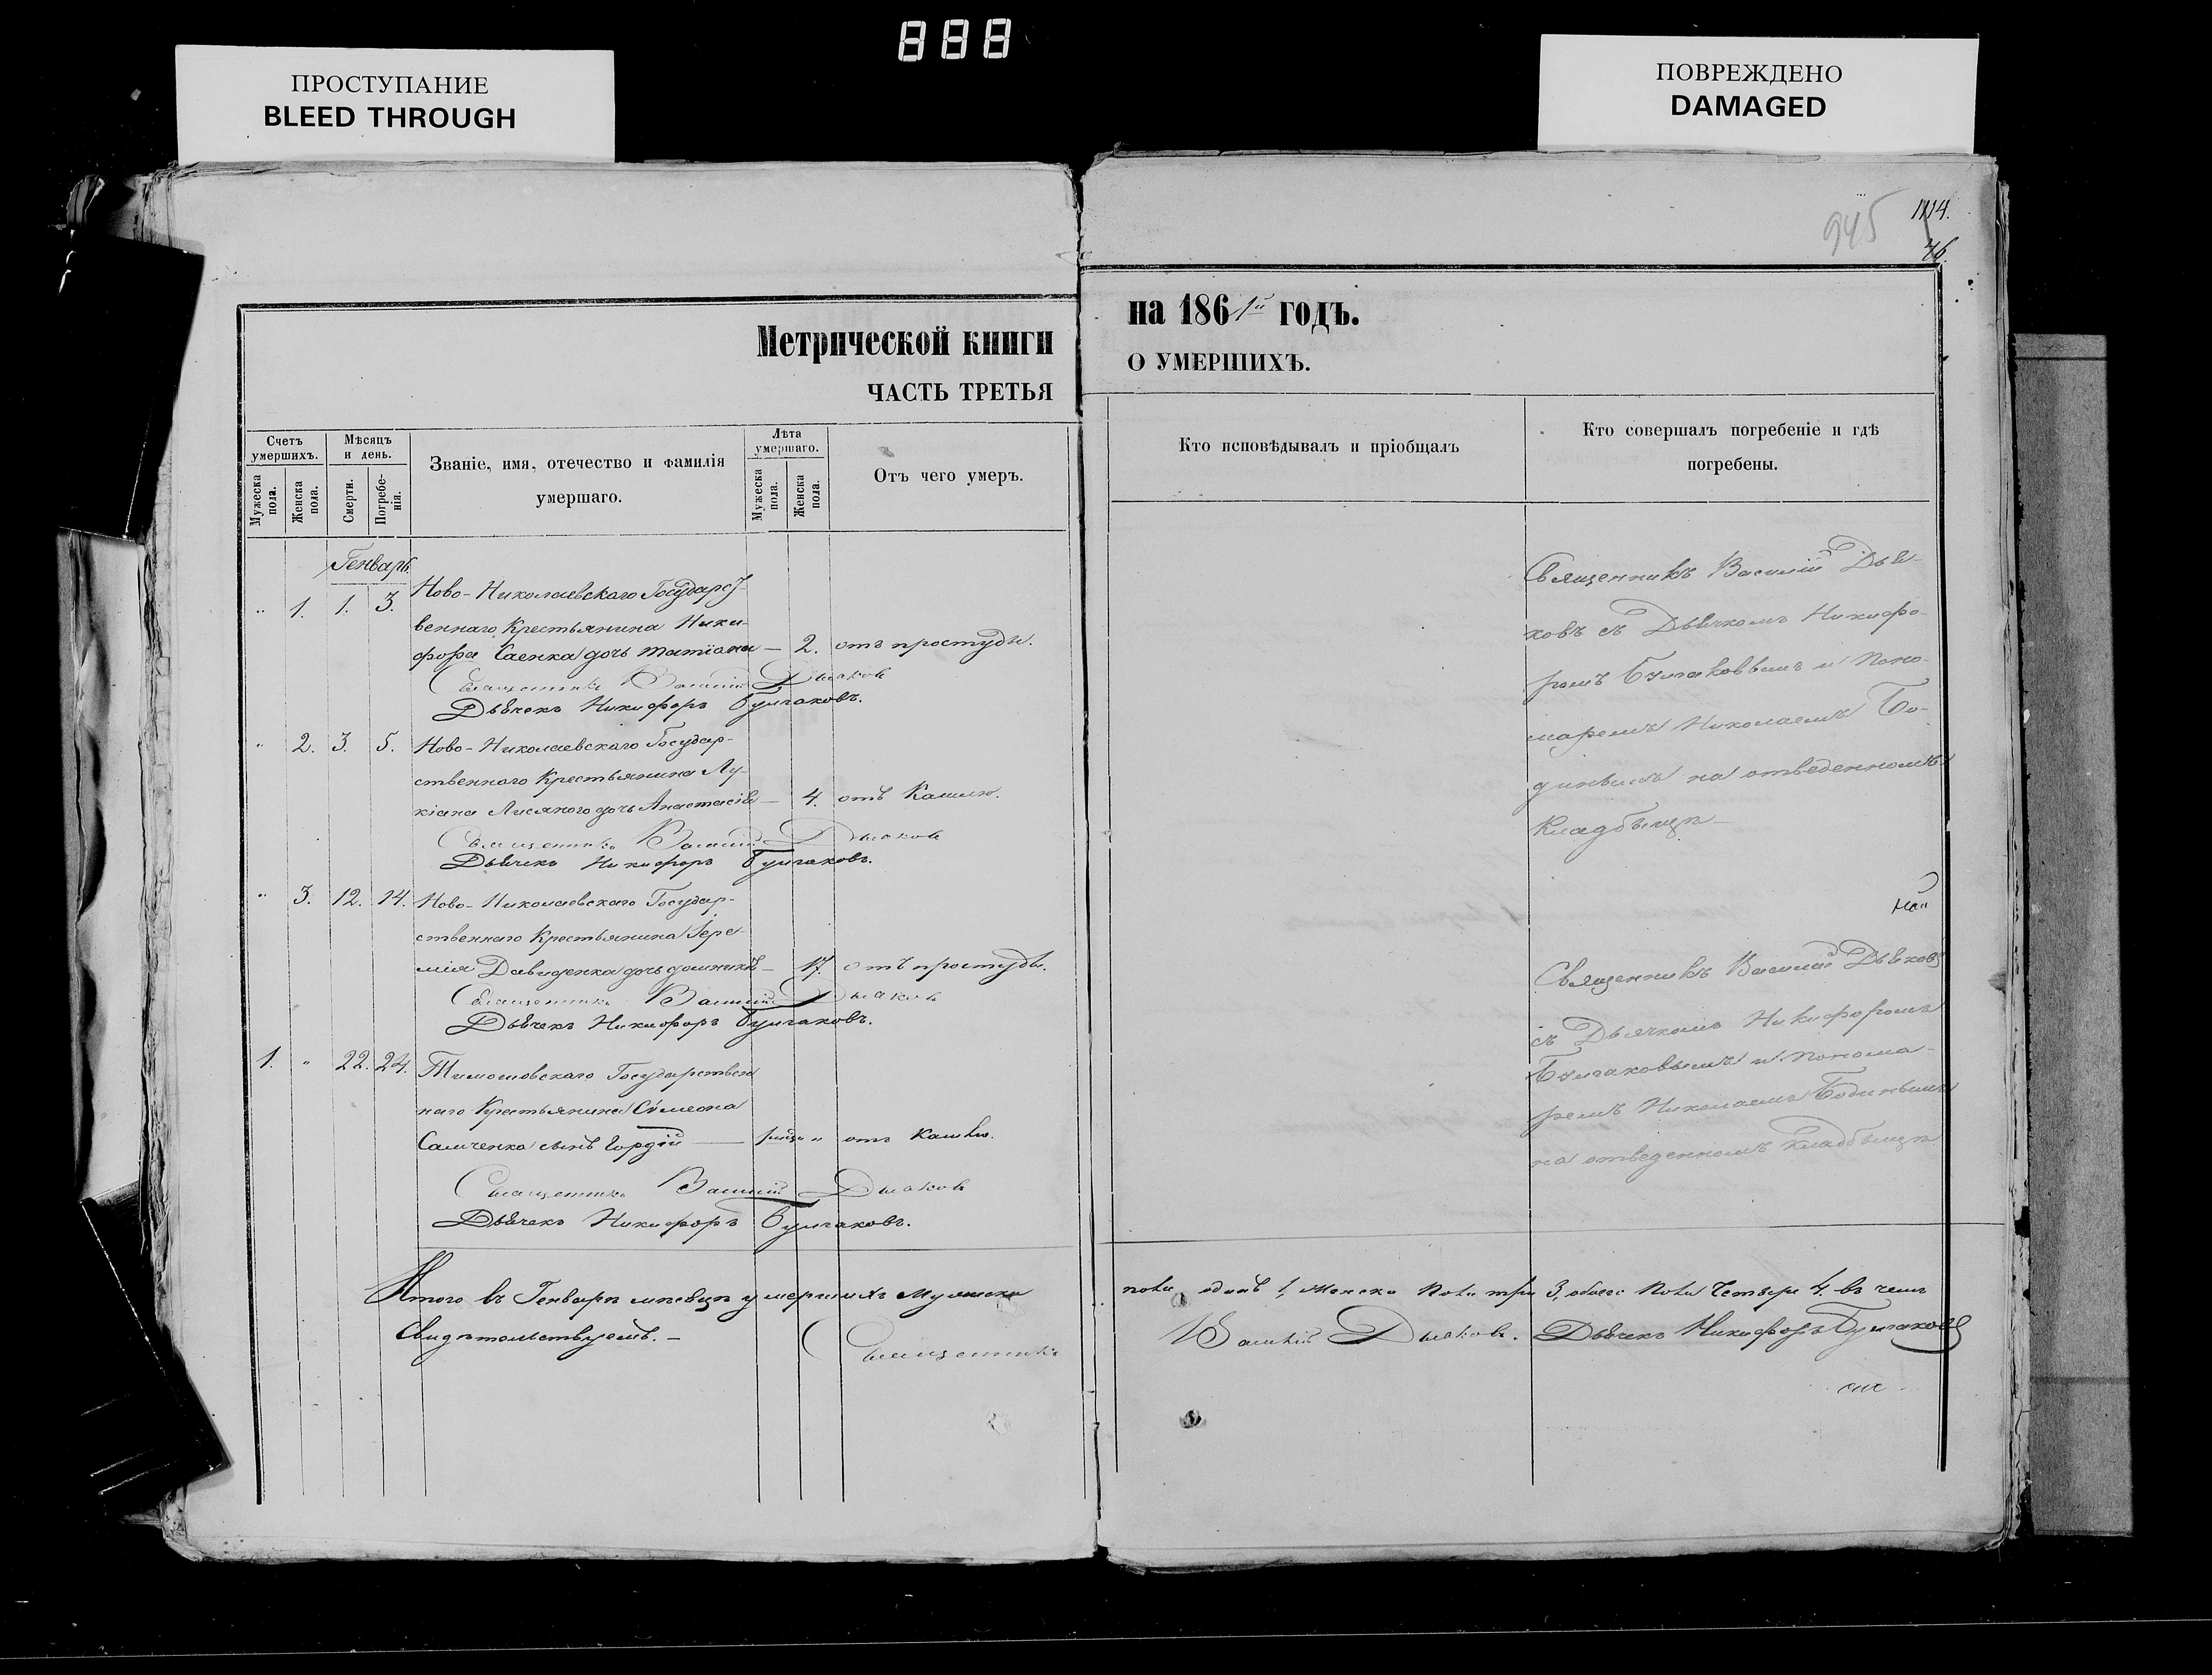 888
ПРОСТУПАНИЕ
BLEED THROUGH
ПОВРЕЖДЕНО
DAMAGED
945
1114.
76.
Метрической книги
ЧАСТЬ ТРЕТЬЯ
на 1861й годъ.
О УМЕРШИХЪ.
Счетъ умершихъ.
Мужеска пола.
Женска пола.
Мѣсяцъ и день.
Смерти.
Погребенія.
Званіе, имя, отечество и фамилія
умершаго.
Лѣта умершаго.
Мужеска пола.
Женска пола.
Отъ чего умеръ.
Кто исповѣдывалъ и пріобщалъ
Кто совершалъ погребеніе и гдѣ
погребены.
Генварь
" 1. 1. 3. Ново-Николаевскаго Государст-
веннаго Крестьянина Ники-
фора Саенка дочь Татіана — 2. отъ простуды.
Священникъ Василій Дьяковъ
Дьячекъ Никифоръ Булгаковъ.
" 2. 3. 5. Ново-Николаевскаго Государ-
ственнаго Крестьянина Лу-
кіана Лисянаго дочь Анастасія — 4. отъ Кашлю.
Священникъ Василій Дьяковъ
Дьячекъ Никифоръ Булгаковъ.
" 3. 12. 14. Ново-Николаевскаго Государ-
ственнаго Крестьянина Іере-
мія Давиденка дочь — 17. отъ простуды.
Священникъ Василій Дьяковъ
Дьячекъ Никифоръ Булгаковъ.
1. " 22. 24. Тимошовскаго Государствен
наго Крестьянина Сѵмеона
Самченка сынъ Гордій — " отъ Кашлю.
Священникъ Василій Дьяковъ
Дьячекъ Никифоръ Булгаковъ.
Священникъ Василій Дья-
ковъ съ Дьячкомъ Никифо-
ромъ Булгаковымъ и Поно-
маремъ Николаемъ Бо-
динымъ на отведенномъ
Кладбищѣ
Священникъ Василій Дьяковъ
съ Дьячкомъ Никифоромъ
Булгаковымъ и Понома-
ремъ Николаемъ Бодинымъ
на отведенномъ кладбищѣ
Итого въ Генварѣ мѣсяцѣ умершихъ Мужеска пола одинъ 1, Женска пола три 3, обоего пола Четыре 4. въ чемъ
Свидѣтельствуемъ. — Священникъ Василій Дьяковъ. Дьячекъ Никифоръ Булгаковъ